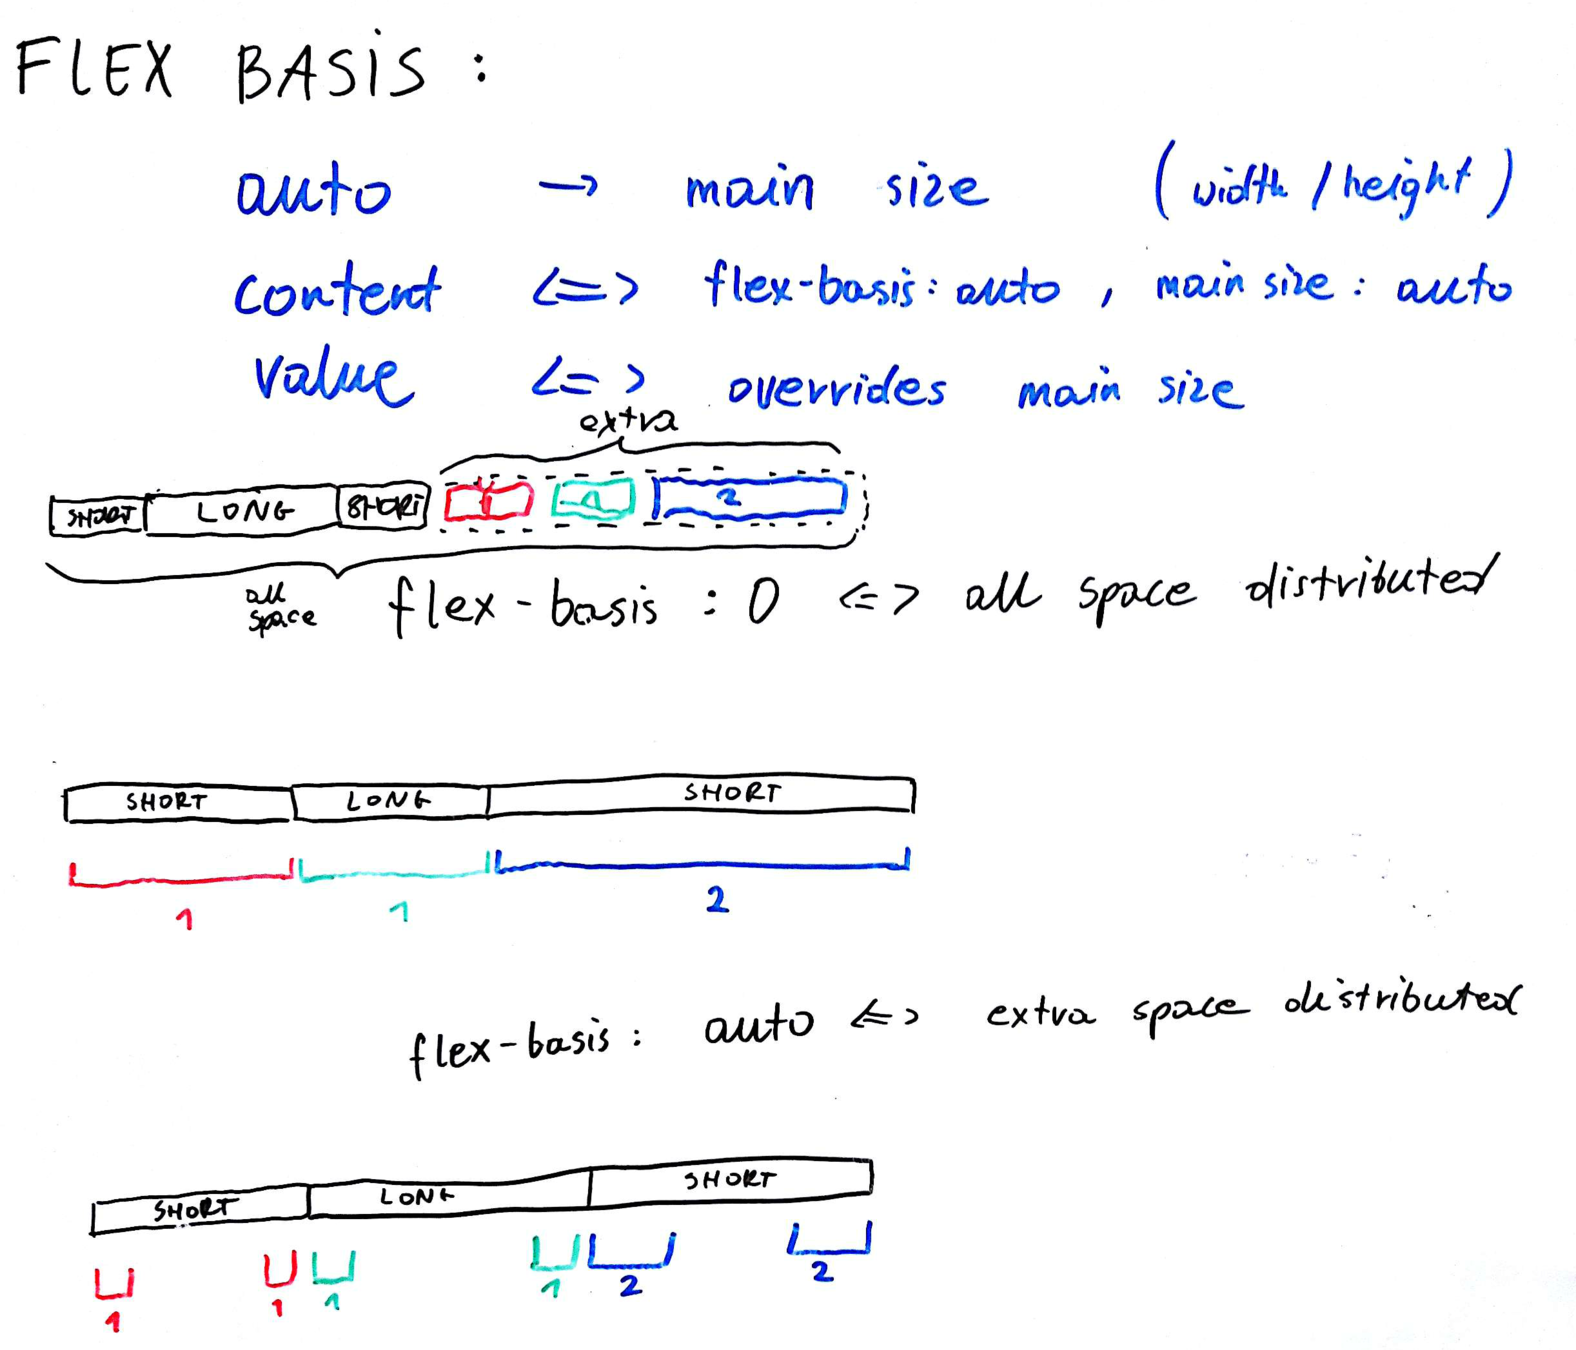 FLEX BASIS :
auto → main size (width / height)
content <=> flex-basis: auto , main size : auto
value <=> overrides main size
extra
SHORT LONG SHORT 1 1 2
all space
flex-basis : 0 <=> all space distributed
SHORT LONG SHORT
1 1 2
flex-basis: auto <=> extra space distributed
SHORT LONG SHORT
1 1 1 1 2 2